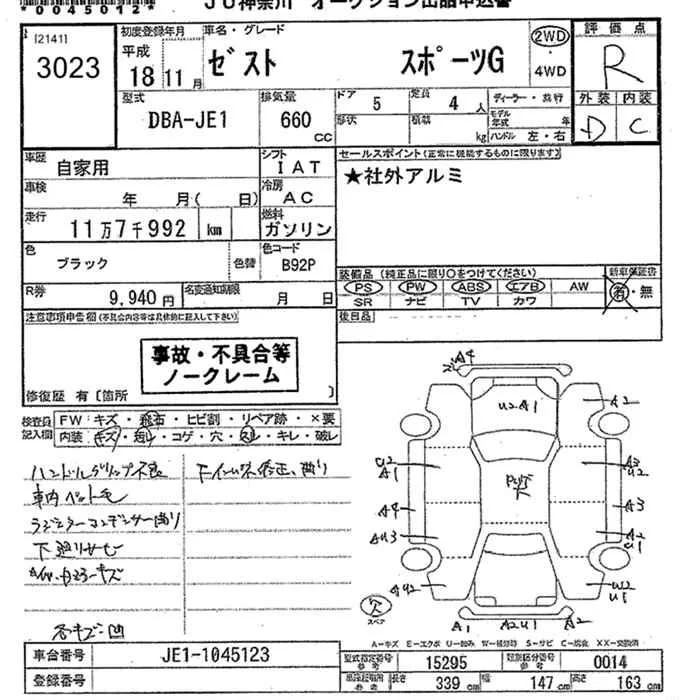 *0045012*
JU神奈川 オークション出品申込書
[2141]
3023
初度登録年月
平成
18年11月
車名・グレード
ゼスト スポーツG
2WD
・
4WD
評価点
R
外装 内装
D C
型式
DBA-JE1
排気量
660 CC
ドア
5
定員
4人
ディーラー・並行
形状
積載
kg
モデル年式 年
ハンドル 左・右
車歴
自家用
シフト
IAT
車検
年 月( 日)
冷房
AC
走行
11万7千992 km
燃料
ガソリン
色
ブラック
色替
色コード
B92P
R券
9,940円
名変通知期限
月 日
セールスポイント(正常に機能するものに限ります)
★社外アルミ
装備品 (純正品に限り○をつけてください)
PS ・ PW ・ ABS ・ エアB ・ AW
SR ・ ナビ ・ TV ・ カワ
新車保証書
有・無
後日品
注意事項申告欄(不具合内容等は具体的に記入して下さい)
事故・不具合等
ノークレーム
修復歴 有〔箇所 〕
検査員記入欄
FW:キズ ・ 飛石 ・ ヒビ割 ・ リペア跡 ・ ×要
内装:キズ ・ 汚れ ・ コゲ ・ 穴 ・ スレ ・ キレ ・ 破レ
ハンドルグリップ不良
車内ペット毛
ラジエターコンデンサー曲り
下廻りサビ
各キズ凹
A4
U2A1
A2
U2
A1
A3
U2
A4
A3
AU3
A2
U1
W2
U1
欠
スペア
A1 A2U1 A2
A-キズ E-エクボ U-凹み W-補修跡 S-サビ C-腐食 XX-交換済
車台番号
JE1-1045123
登録番号
型式指定番号
参考
15295
類別区分番号
参考
0014
参考
長さ 339 cm
幅 147 cm
高さ 163 cm